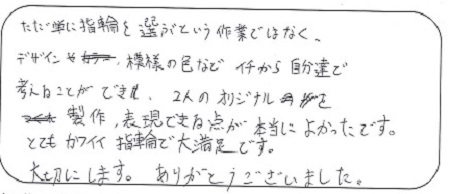 ただ単に指輪を選ぶという作業ではなく、
デザインや、模様の色など イチから自分達で
考えることができ、2人のオリジナルを
製作、表現できる点が本当によかったです。
とてもカワイイ指輪で大満足です。
大切にします。ありがとうございました。